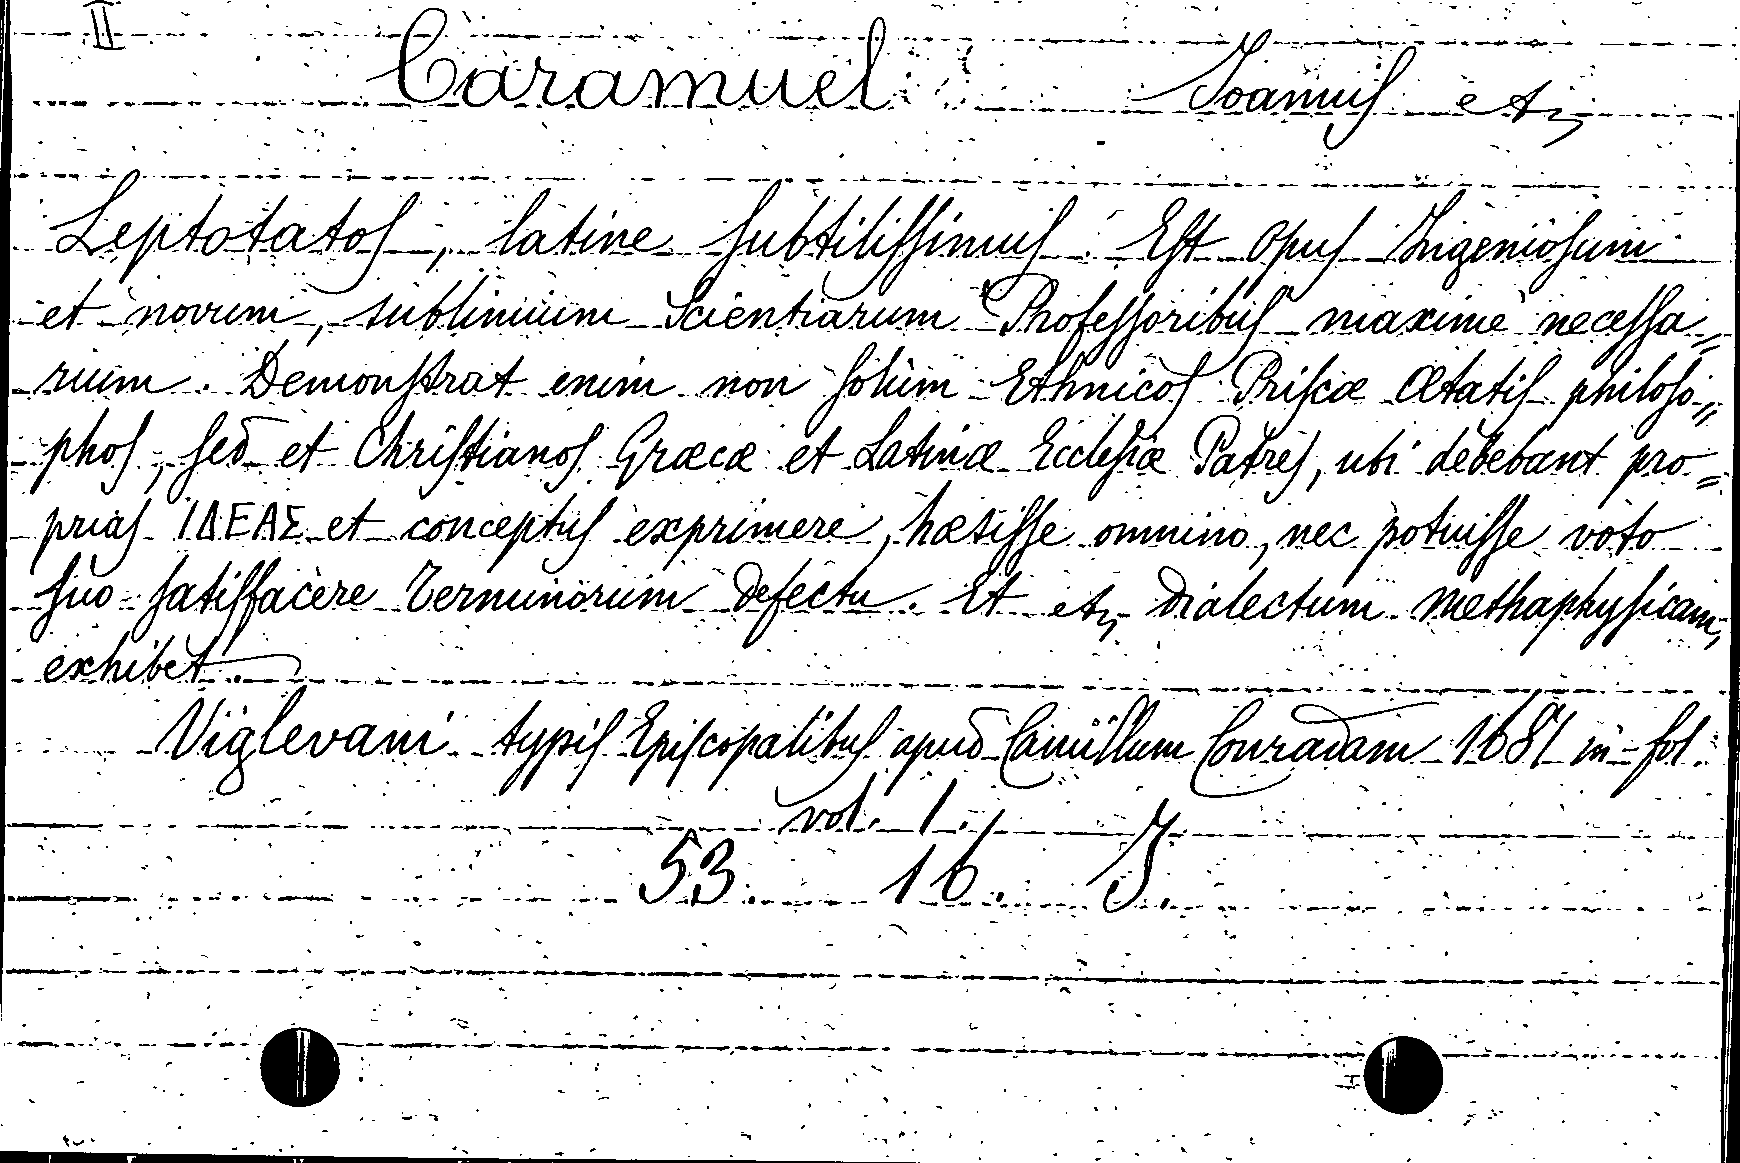 II
Caramuel Joannis etc
Leptotatos, latine subtilissimus. Est opus Ingeniosum
et novum, sublimium Scientiarum Professoribus maxime necessa=
rium. Demonstrat enim non solum Ethnicos Priscæ Ætatis philoso=
phos, sed et Christianos Græcæ et Latinæ Ecclesiæ Patres, ubi debebant pro=
prias ΙΔΕΑΣ et conceptus exprimere, hæsisse omnino, nec potuisse voto
suo satisfacere Terminorum defectu. Et etc dialectum methaphysicam,
exhibet.
Viglevani typis Episcopalibus apud Camillum Conradam 1681 in fol.
vol. 1.
53. 16. J.